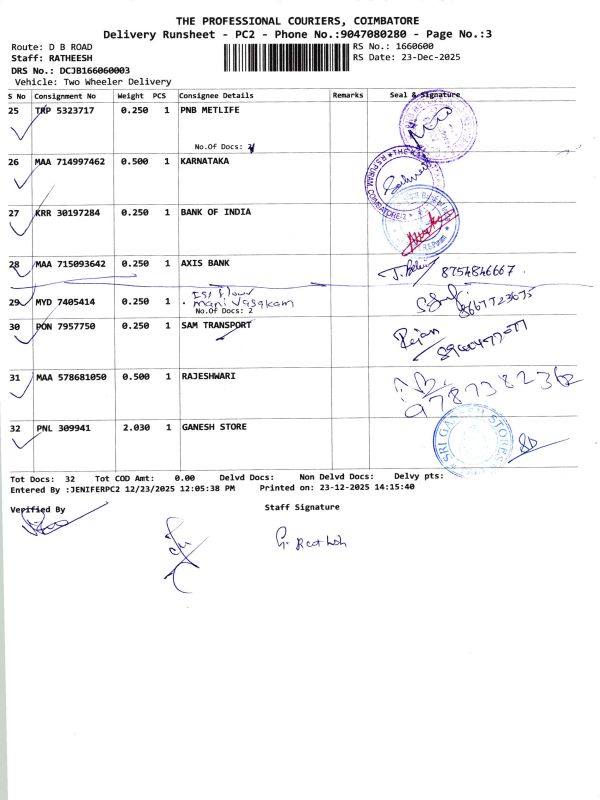 THE PROFESSIONAL COURIERS, COIMBATORE
Delivery Runsheet - PC2 - Phone No.:9047080280 - Page No.:3
Route: D B ROAD RS No.: 1660600
Staff: RATHEESH RS Date: 23-Dec-2025
DRS No.: DCJB166060003
Vehicle: Two Wheeler Delivery
S No Consignment No Weight PCS Consignee Details Remarks Seal & Signature
25 TRP 5323717 0.250 1 PNB METLIFE
No.Of Docs: 2
26 MAA 714997462 0.500 1 KARNATAKA
27 KRR 30197284 0.250 1 BANK OF INDIA
28 MAA 715093642 0.250 1 AXIS BANK 8754846667
29 MYD 7405414 0.250 1 1st floor
mani vasakam
No.Of Docs: 2
30 PON 7957750 0.250 1 SAM TRANSPORT
31 MAA 578681050 0.500 1 RAJESHWARI
32 PNL 309941 2.030 1 GANESH STORE SRI GANESH STORES
Tot Docs: 32 Tot COD Amt: 0.00 Delvd Docs: Non Delvd Docs: Delvy pts:
Entered By :JENIFERPC2 12/23/2025 12:05:38 PM Printed on: 23-12-2025 14:15:40
Verified By Staff Signature